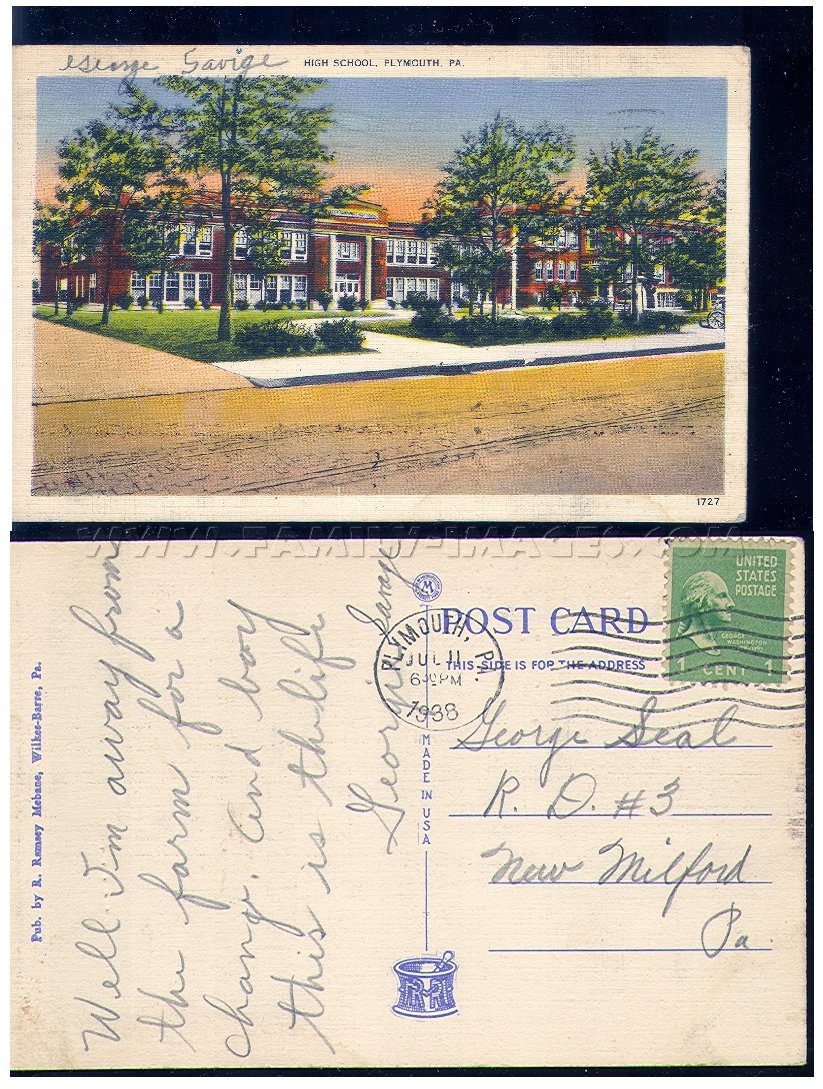 George Savige
HIGH SCHOOL, PLYMOUTH, PA.
1727
WWW.FAMILY-IMAGES.COM
Pub. by R. Ramsey Mebane, Wilkes-Barre, Pa.
Well I'm away from
the farm for a
change. and boy
this is the life
Georgie Savige
POST CARD
THIS SIDE IS FOR THE ADDRESS
PLYMOUTH, PA.
JUL 11
630PM
1938
UNITED
STATES
POSTAGE
GEORGE
WASHINGTON
1 CENT 1
MADE IN USA
George Seal
R. D. #3
New Milford
Pa